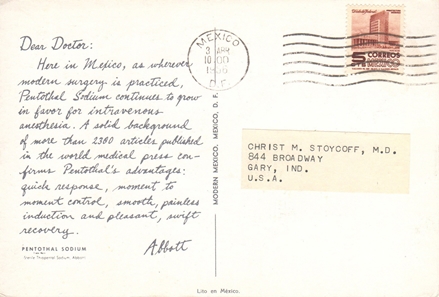 Dear Doctor:
Here in Mexico, as wherever
modern surgery is practiced,
Pentothal Sodium continues to grow
in favor for intravenous
anesthesia. A solid background
of more than 2300 articles published
in the world medical press con-
firms Pentothal's advantages:
quick response, moment to
moment control, smooth, painless
induction and pleasant, swift
recovery.
Abbott
PENTOTHAL SODIUM
Sterile Thiopental Sodium, Abbott
MODERN MEXICO. MEXICO, D. F.
MEXICO
3 ABR
10 00
D.F.
5
CORREO
CHRIST M. STOYCOFF, M.D.
844 BROADWAY
GARY, IND.
U.S.A.
Lito en México.